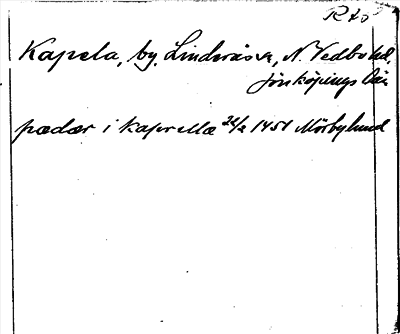 Kapela, by, Linderås sn, N. Vedbo hd,
Jönköpings län
pædær i kapellæ 22/2 1451 Mörbylund